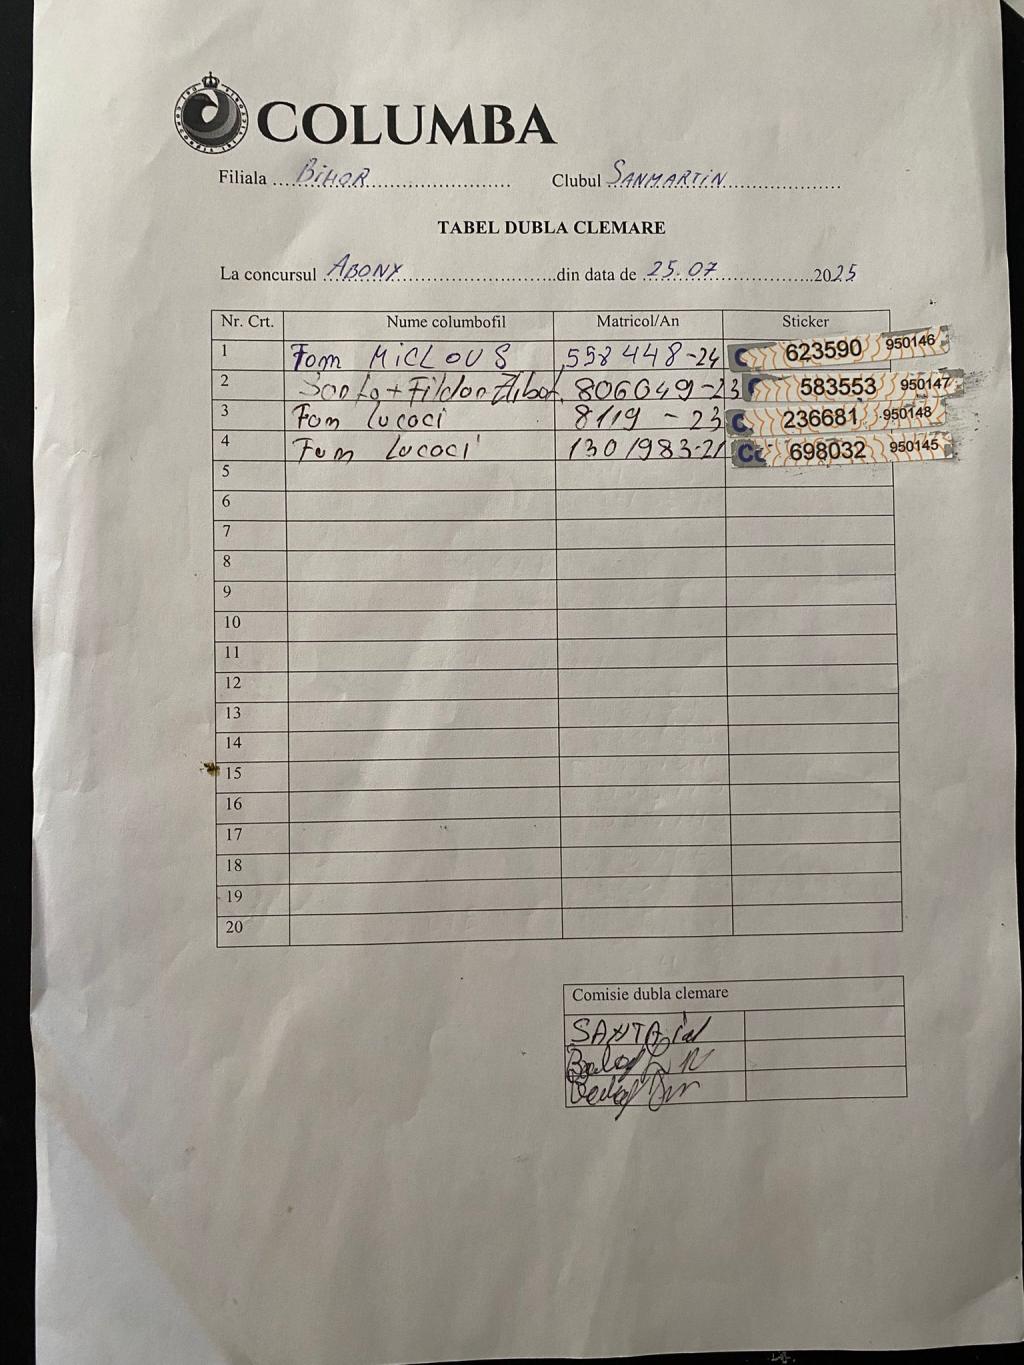 COLUMBA
Filiala ... BIHOR ........................... Clubul SANMARTIN .......................
TABEL DUBLA CLEMARE
La concursul ABONY ..............................din data de 25.07 ...................2025
Nr. Crt. Nume columbofil Matricol/An Sticker
1 Fam MICLOUS 558448-24 623590 950146
2 806049-23 583553 950147
3 Fam Lucaci 8119 - 23 236681 950148
4 Fam Lucaci 1301983-21 698032 950145
5
6
7
8
9
10
11
12
13
14
15
16
17
18
19
20
Comisie dubla clemare
SANTA